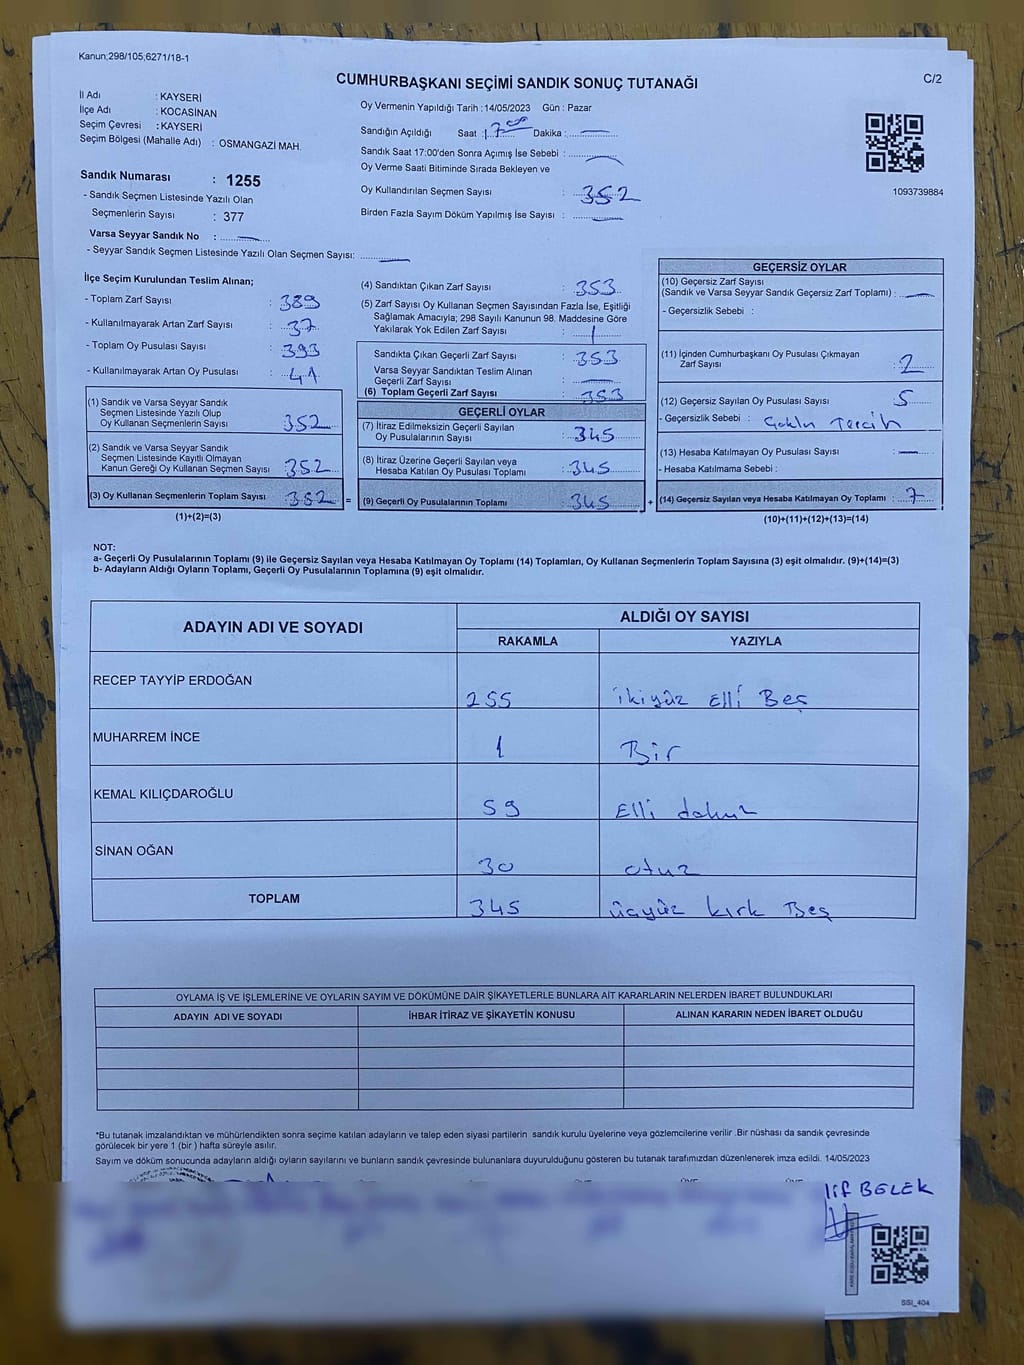 Kanun;298/105;6271/18-1
CUMHURBAŞKANI SEÇİMİ SANDIK SONUÇ TUTANAĞI
C/2
İl Adı : KAYSERİ
İlçe Adı : KOCASİNAN
Seçim Çevresi : KAYSERİ
Seçim Bölgesi (Mahalle Adı) : OSMANGAZİ MAH.
Oy Vermenin Yapıldığı Tarih :14/05/2023 Gün : Pazar
Sandığın Açıldığı Saat :17.00 Dakika :
Sandık Saat 17:00'den Sonra Açımış İse Sebebi :
Oy Verme Saati Bitiminde Sırada Bekleyen ve
Oy Kullandırılan Seçmen Sayısı : 352
Birden Fazla Sayım Döküm Yapılmış İse Sayısı :
1093739884
Sandık Numarası : 1255
- Sandık Seçmen Listesinde Yazılı Olan
Seçmenlerin Sayısı : 377
Varsa Seyyar Sandık No :
- Seyyar Sandık Seçmen Listesinde Yazılı Olan Seçmen Sayısı:
İlçe Seçim Kurulundan Teslim Alınan;
- Toplam Zarf Sayısı : 389
- Kullanılmayarak Artan Zarf Sayısı : 37
- Toplam Oy Pusulası Sayısı : 393
- Kullanılmayarak Artan Oy Pusulası : 41
(1) Sandık ve Varsa Seyyar Sandık
Seçmen Listesinde Yazılı Olup
Oy Kullanan Seçmenlerin Sayısı : 352
(2) Sandık ve Varsa Seyyar Sandık
Seçmen Listesinde Kayıtlı Olmayan
Kanun Gereği Oy Kullanan Seçmen Sayısı : 352
(3) Oy Kullanan Seçmenlerin Toplam Sayısı : 352
(1)+(2)=(3)
(4) Sandıktan Çıkan Zarf Sayısı : 353
(5) Zarf Sayısı Oy Kullanan Seçmen Sayısından Fazla İse, Eşitliği
Sağlamak Amacıyla; 298 Sayılı Kanunun 98. Maddesine Göre
Yakılarak Yok Edilen Zarf Sayısı : 1
Sandıkta Çıkan Geçerli Zarf Sayısı : 353
Varsa Seyyar Sandıktan Teslim Alınan
Geçerli Zarf Sayısı :
(6) Toplam Geçerli Zarf Sayısı : 353
GEÇERLİ OYLAR
(7) İtiraz Edilmeksizin Geçerli Sayılan
Oy Pusulalarının Sayısı : 345
(8) İtiraz Üzerine Geçerli Sayılan veya
Hesaba Katılan Oy Pusulası Toplamı : 345
= (9) Geçerli Oy Pusulalarının Toplamı : 345 +
GEÇERSİZ OYLAR
(10) Geçersiz Zarf Sayısı
(Sandık ve Varsa Seyyar Sandık Geçersiz Zarf Toplamı) :
- Geçersizlik Sebebi :
(11) İçinden Cumhurbaşkanı Oy Pusulası Çıkmayan
Zarf Sayısı : 2
(12) Geçersiz Sayılan Oy Pusulası Sayısı : 5
- Geçersizlik Sebebi : Çoklu Tercih
(13) Hesaba Katılmayan Oy Pusulası Sayısı :
- Hesaba Katılmama Sebebi :
(14) Geçersiz Sayılan veya Hesaba Katılmayan Oy Toplamı : 7
(10)+(11)+(12)+(13)=(14)
NOT:
a- Geçerli Oy Pusulalarının Toplamı (9) ile Geçersiz Sayılan veya Hesaba Katılmayan Oy Toplamı (14) Toplamları, Oy Kullanan Seçmenlerin Toplam Sayısına (3) eşit olmalıdır. (9)+(14)=(3)
b- Adayların Aldığı Oyların Toplamı, Geçerli Oy Pusulalarının Toplamına (9) eşit olmalıdır.
ADAYIN ADI VE SOYADI
ALDIĞI OY SAYISI
RAKAMLA YAZIYLA
RECEP TAYYİP ERDOĞAN 255 ikiyüz Elli Beş
MUHARREM İNCE 1 Bir
KEMAL KILIÇDAROĞLU 59 Elli dokuz
SİNAN OĞAN 30 otuz
TOPLAM 345 üçyüz kırk Beş
OYLAMA İŞ VE İŞLEMLERİNE VE OYLARIN SAYIM VE DÖKÜMÜNE DAİR ŞİKAYETLERLE BUNLARA AİT KARARLARIN NELERDEN İBARET BULUNDUKLARI
ADAYIN ADI VE SOYADI İHBAR İTİRAZ VE ŞİKAYETİN KONUSU ALINAN KARARIN NEDEN İBARET OLDUĞU
*Bu tutanak imzalandıktan ve mühürlendikten sonra seçime katılan adayların ve talep eden siyasi partilerin sandık kurulu üyelerine veya gözlemcilerine verilir .Bir nüshası da sandık çevresinde
görülecek bir yere 1 (bir ) hafta süreyle asılır.
Sayım ve döküm sonucunda adayların aldığı oyların sayılarını ve bunların sandık çevresinde bulunanlara duyurulduğunu gösteren bu tutanak tarafımızdan düzenlenerek imza edildi. 14/05/2023
lif BELEK
SSI_404